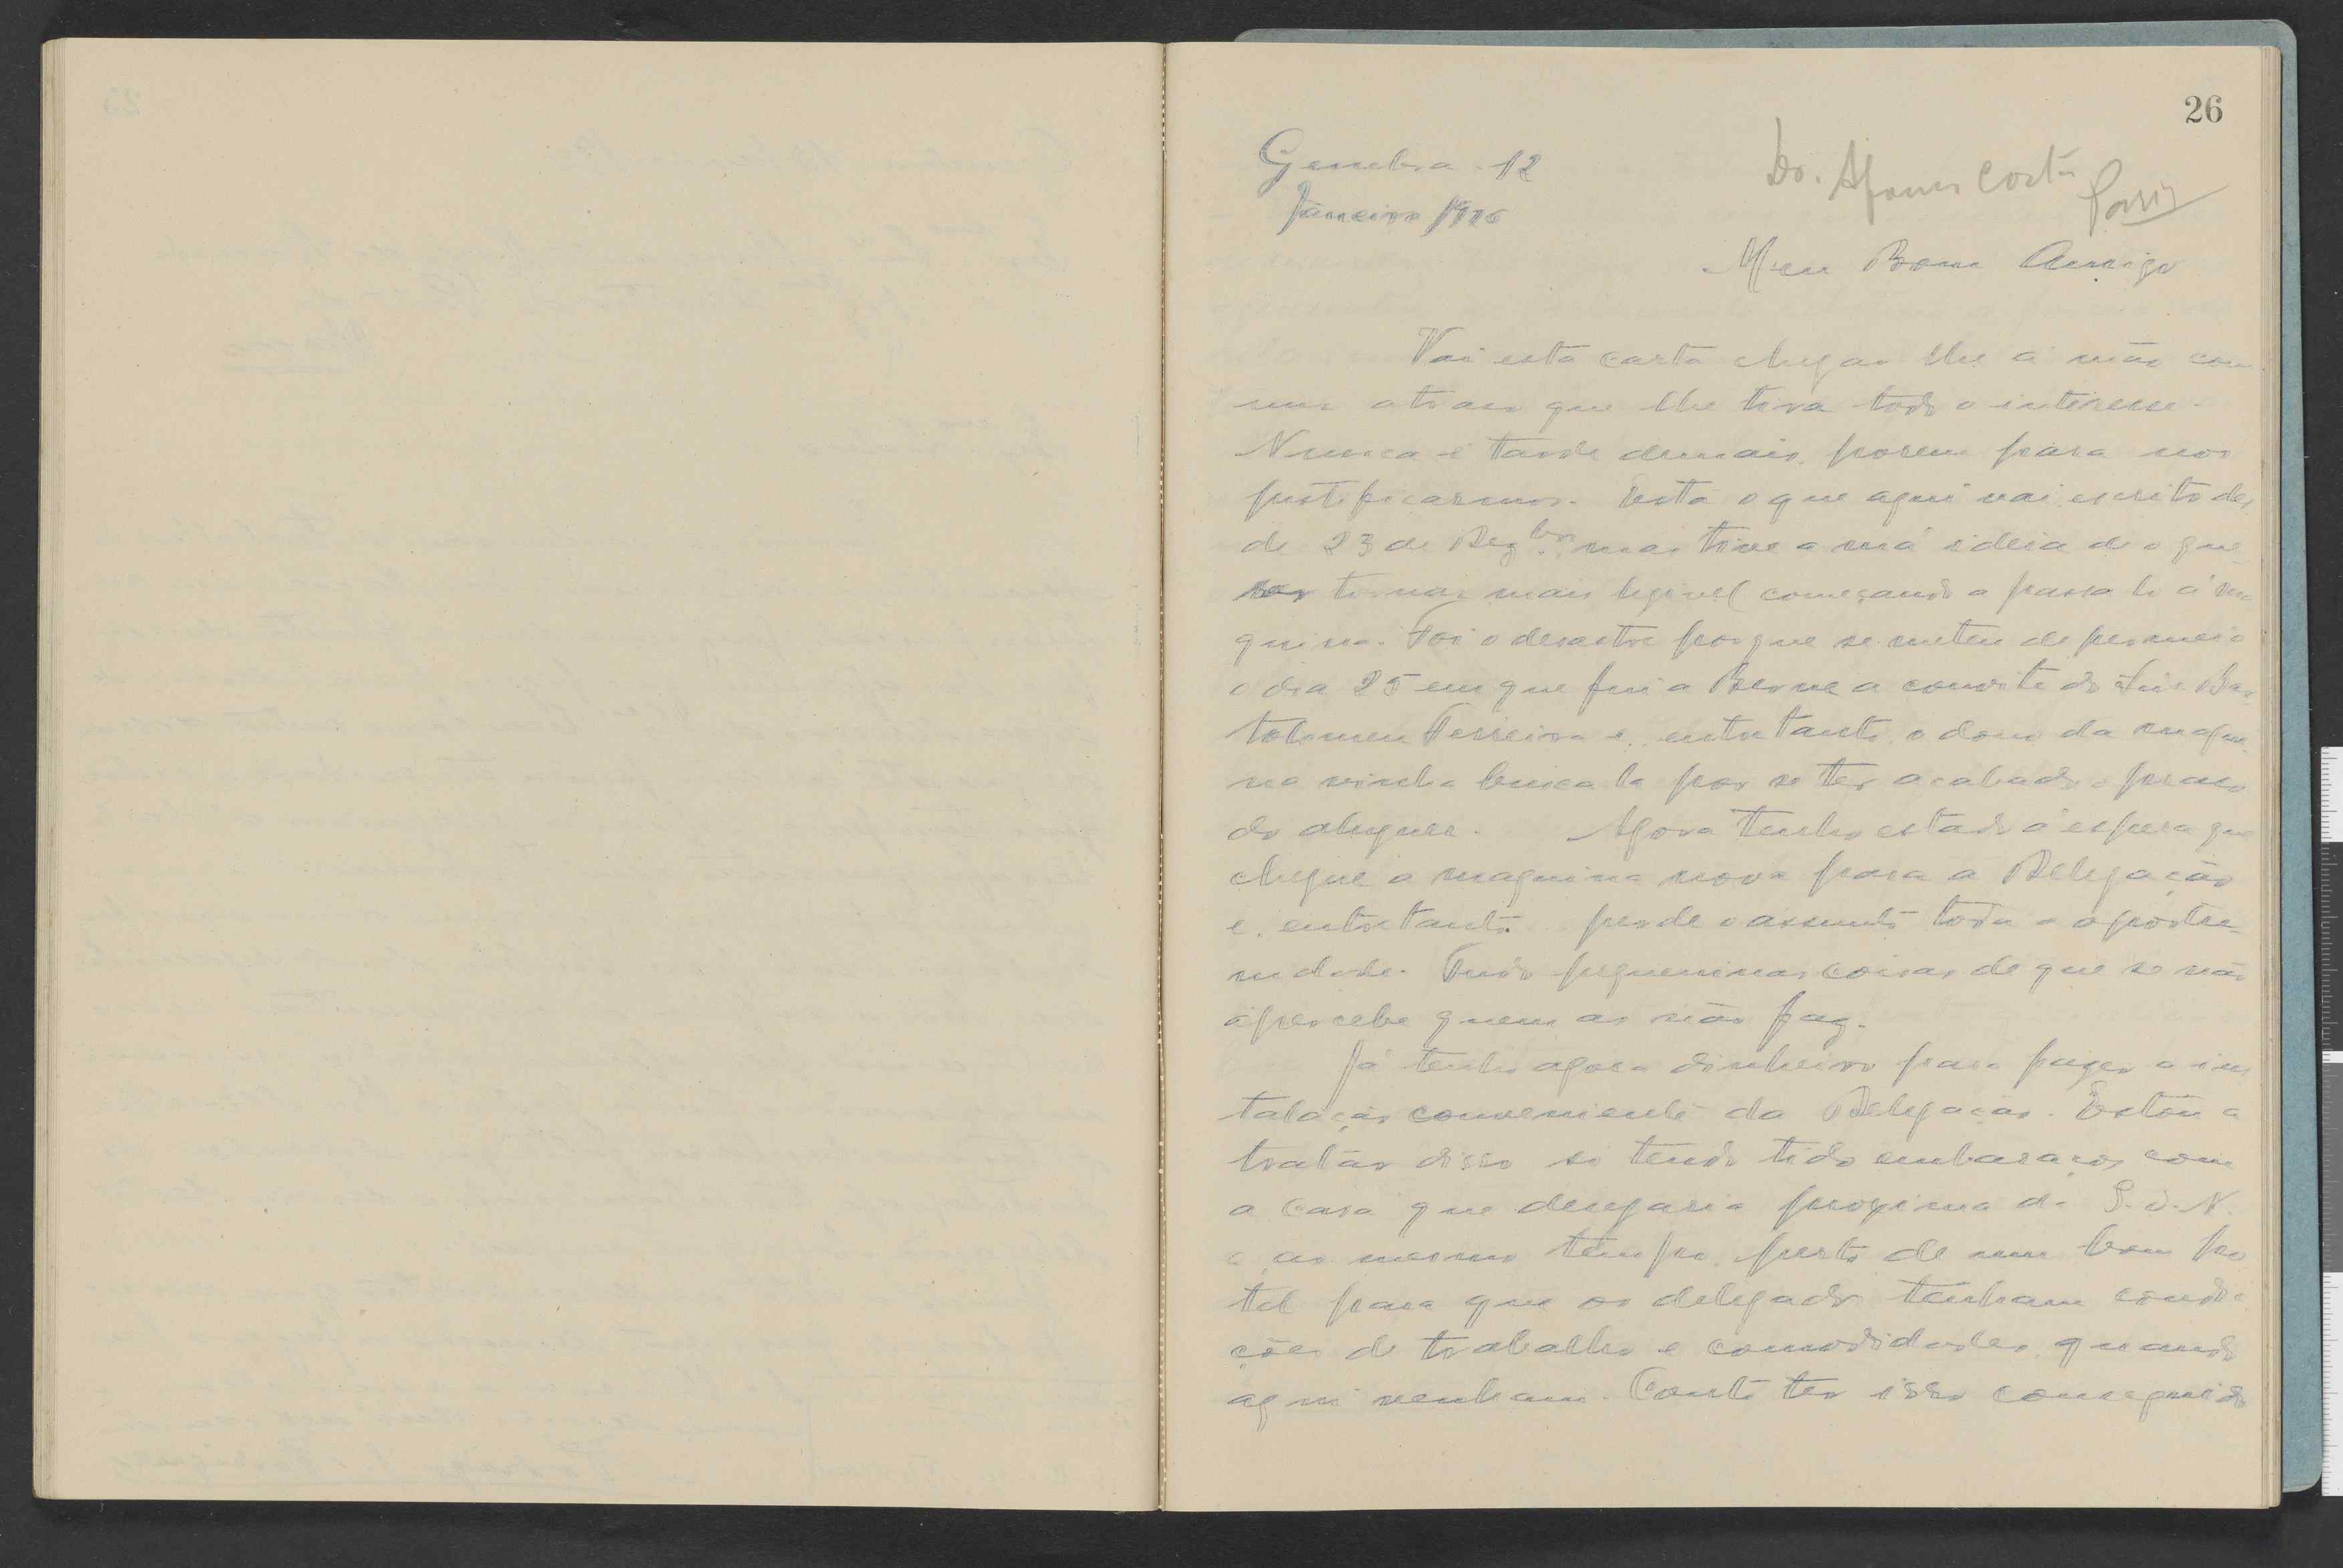 26
Genebra. 12
Janeiro 1926
Dr. Afonso Costa
Paris
Meu Bom Amigo
Vai esta carta chegar lhe á mão com
um atraso que lhe tira todo o interesse.
Nunca é tarde demais, porem para nos
justificarmos. Está o que aqui vai escrito des
de 23 de Dezbro. mas tive a má ideia de o que
rer tornar mais legivel começando a passa lo á ma
quina. Foi o desastre porque se meteu de permeio
o dia 25 em que fui a Berne a convite do Bar
tolomeu Ferreira e, entretanto, o dono da maqui
na vinha busca la por se ter acabado o praso
do aluguer. Agora tenho estado á espera que
chegue a maquina nova para a Delegação
e, entretanto, perde o assunto toda a oportu-
nidade. Tudo pequeninas coisas de que se não
apercebe quem as não faz.
Já tenho agora dinheiro para pagar a ins
talação conveniente da Delegação. Estou a
tratar disso só tendo tido embaraços com
a casa que desejaria proxima da S. d. N.
e, ao mesmo tempo, perto de um bom ho
tel para que os delegados tenham condi
ções de trabalho e comodidades quando
aqui venham. Conto ter isso conseguido